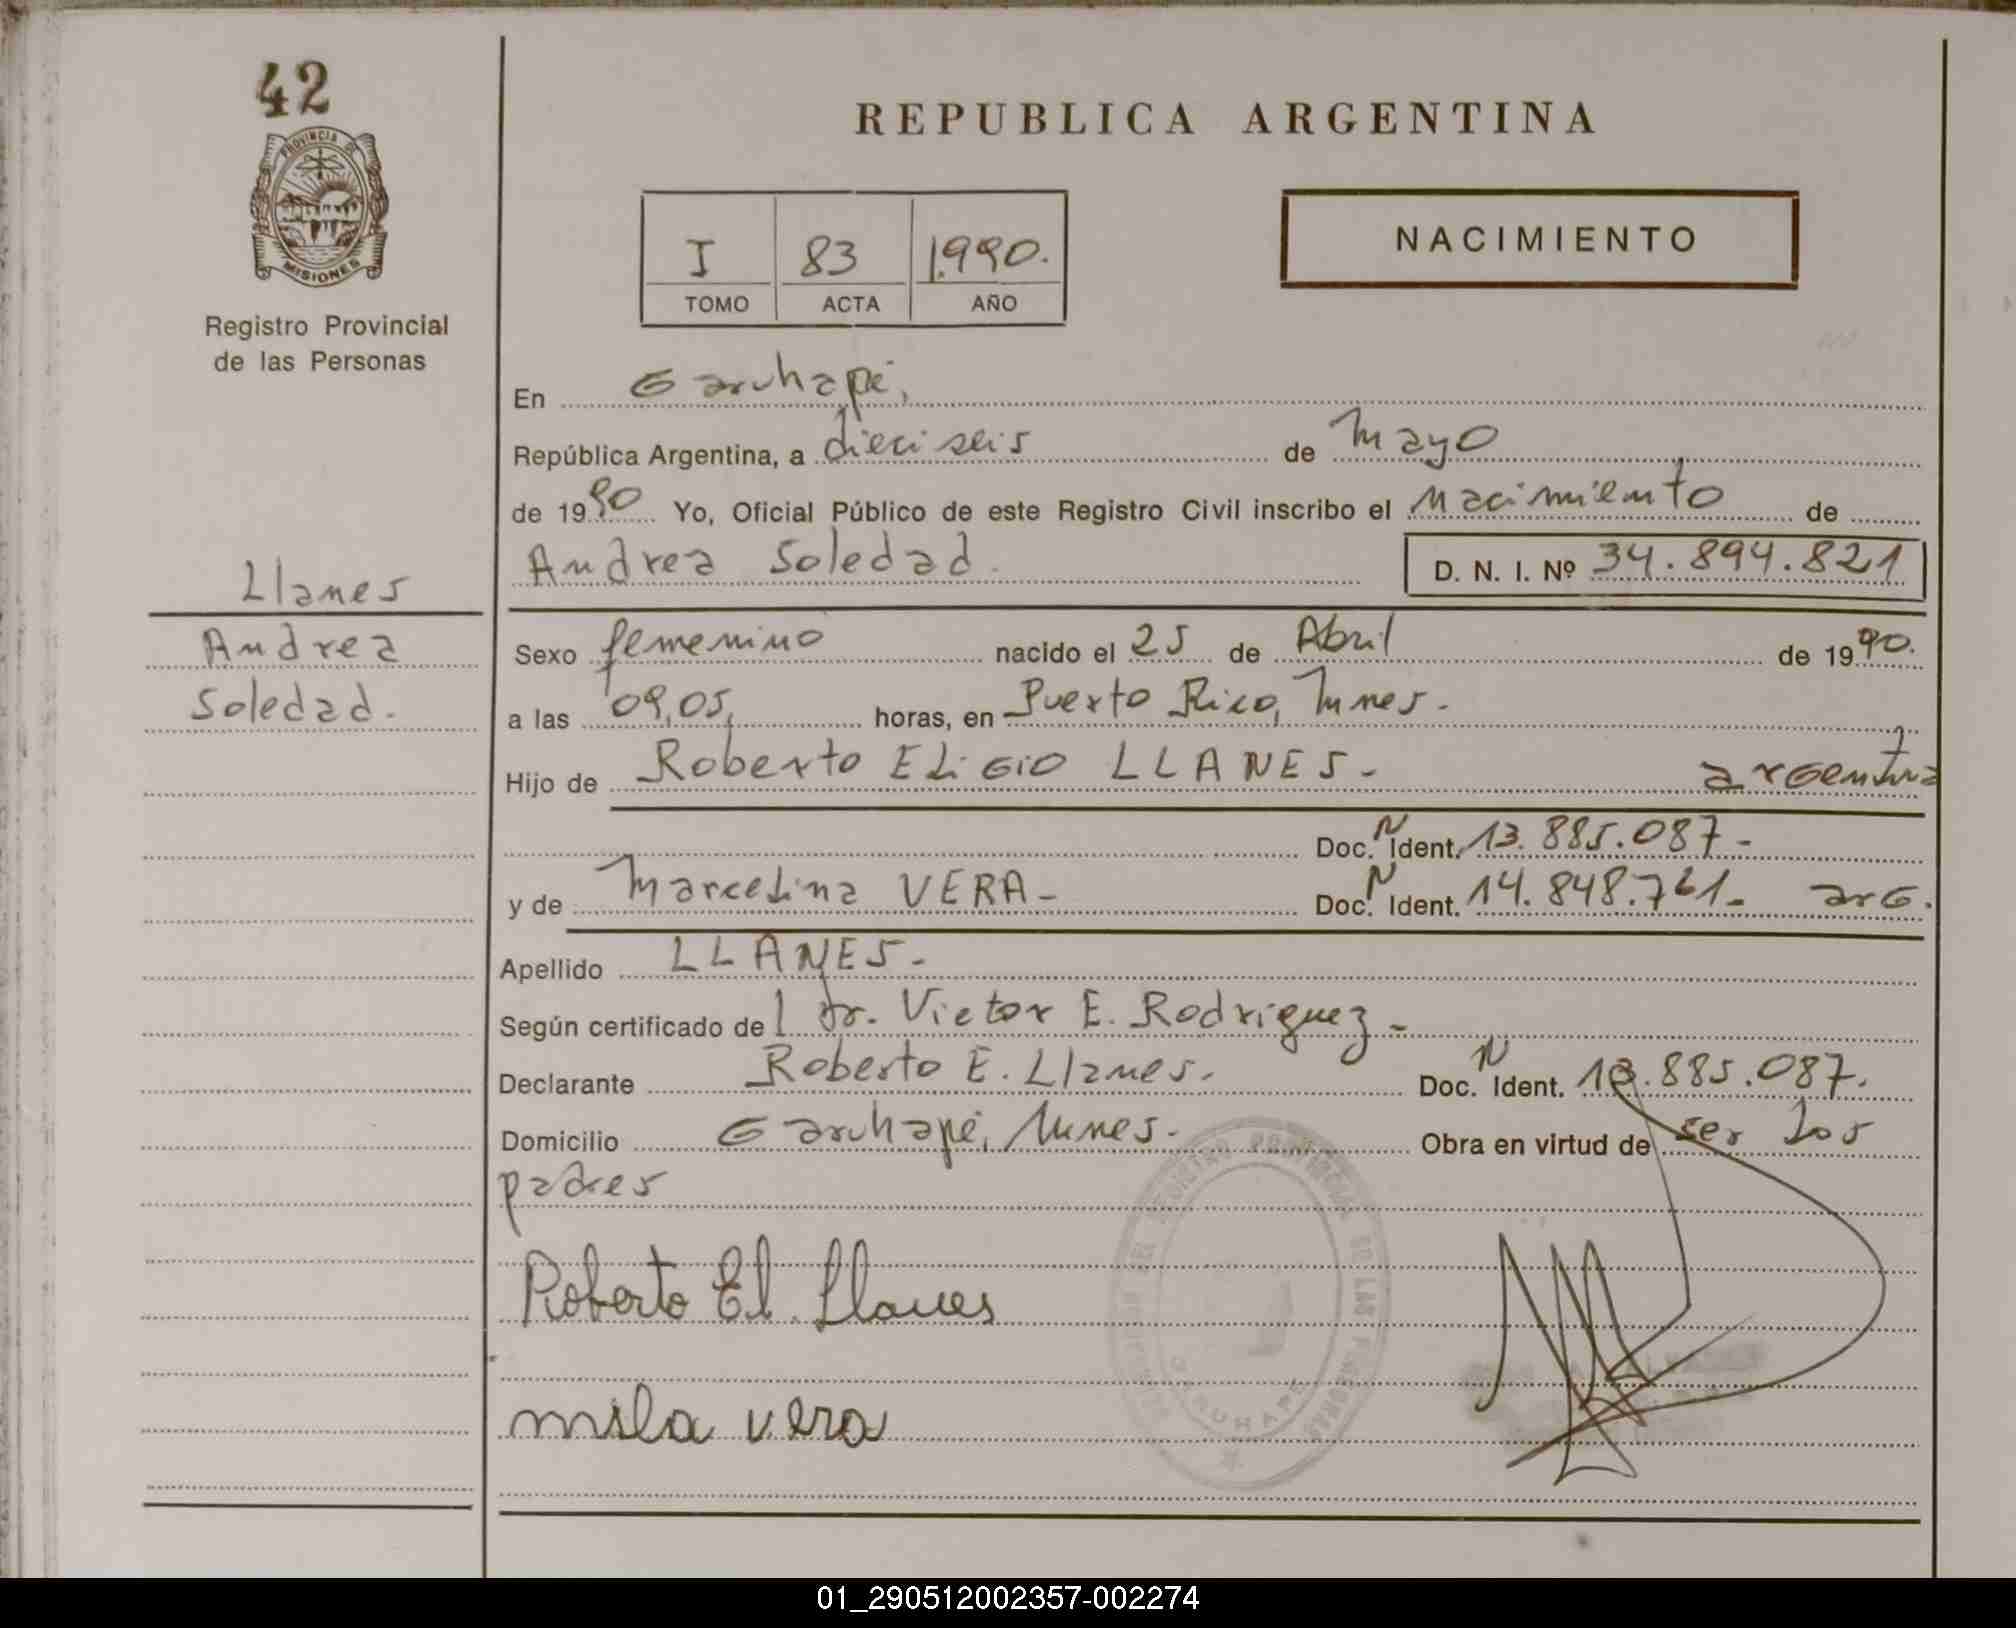 42
PROVINCIA DE
MISIONES
Registro Provincial
de las Personas
Llanes
Andrea
Soledad.
REPUBLICA ARGENTINA
I 83 1.990.
TOMO ACTA AÑO
NACIMIENTO
En Garuhapé,
República Argentina, a dieciseis de Mayo
de 1990 Yo, Oficial Público de este Registro Civil inscribo el Nacimiento de
Andrea Soledad. D. N. I. Nº 34.894.821
Sexo femenino nacido el 25 de Abril de 1990.
a las 09,05, horas, en Puerto Rico, Mnes.
Hijo de Roberto ELiGiO LLANES. argentina
Doc. N Ident. 13.885.087-
y de Marcelina VERA- Doc. N Ident. 14.848.761- arG.
Apellido LLANES.-
Según certificado del Dr. Victor E. Rodriguez-
Declarante Roberto E. Llanes. Doc. N Ident. 13.885.087.
Domicilio Garuhapé, Mnes. Obra en virtud de ser los
padres
Roberto El. Llanes
mila vera
DEL REGISTRO PROVINCIAL DE LAS PERSONAS
GARUHAPE
01_290512002357-002274